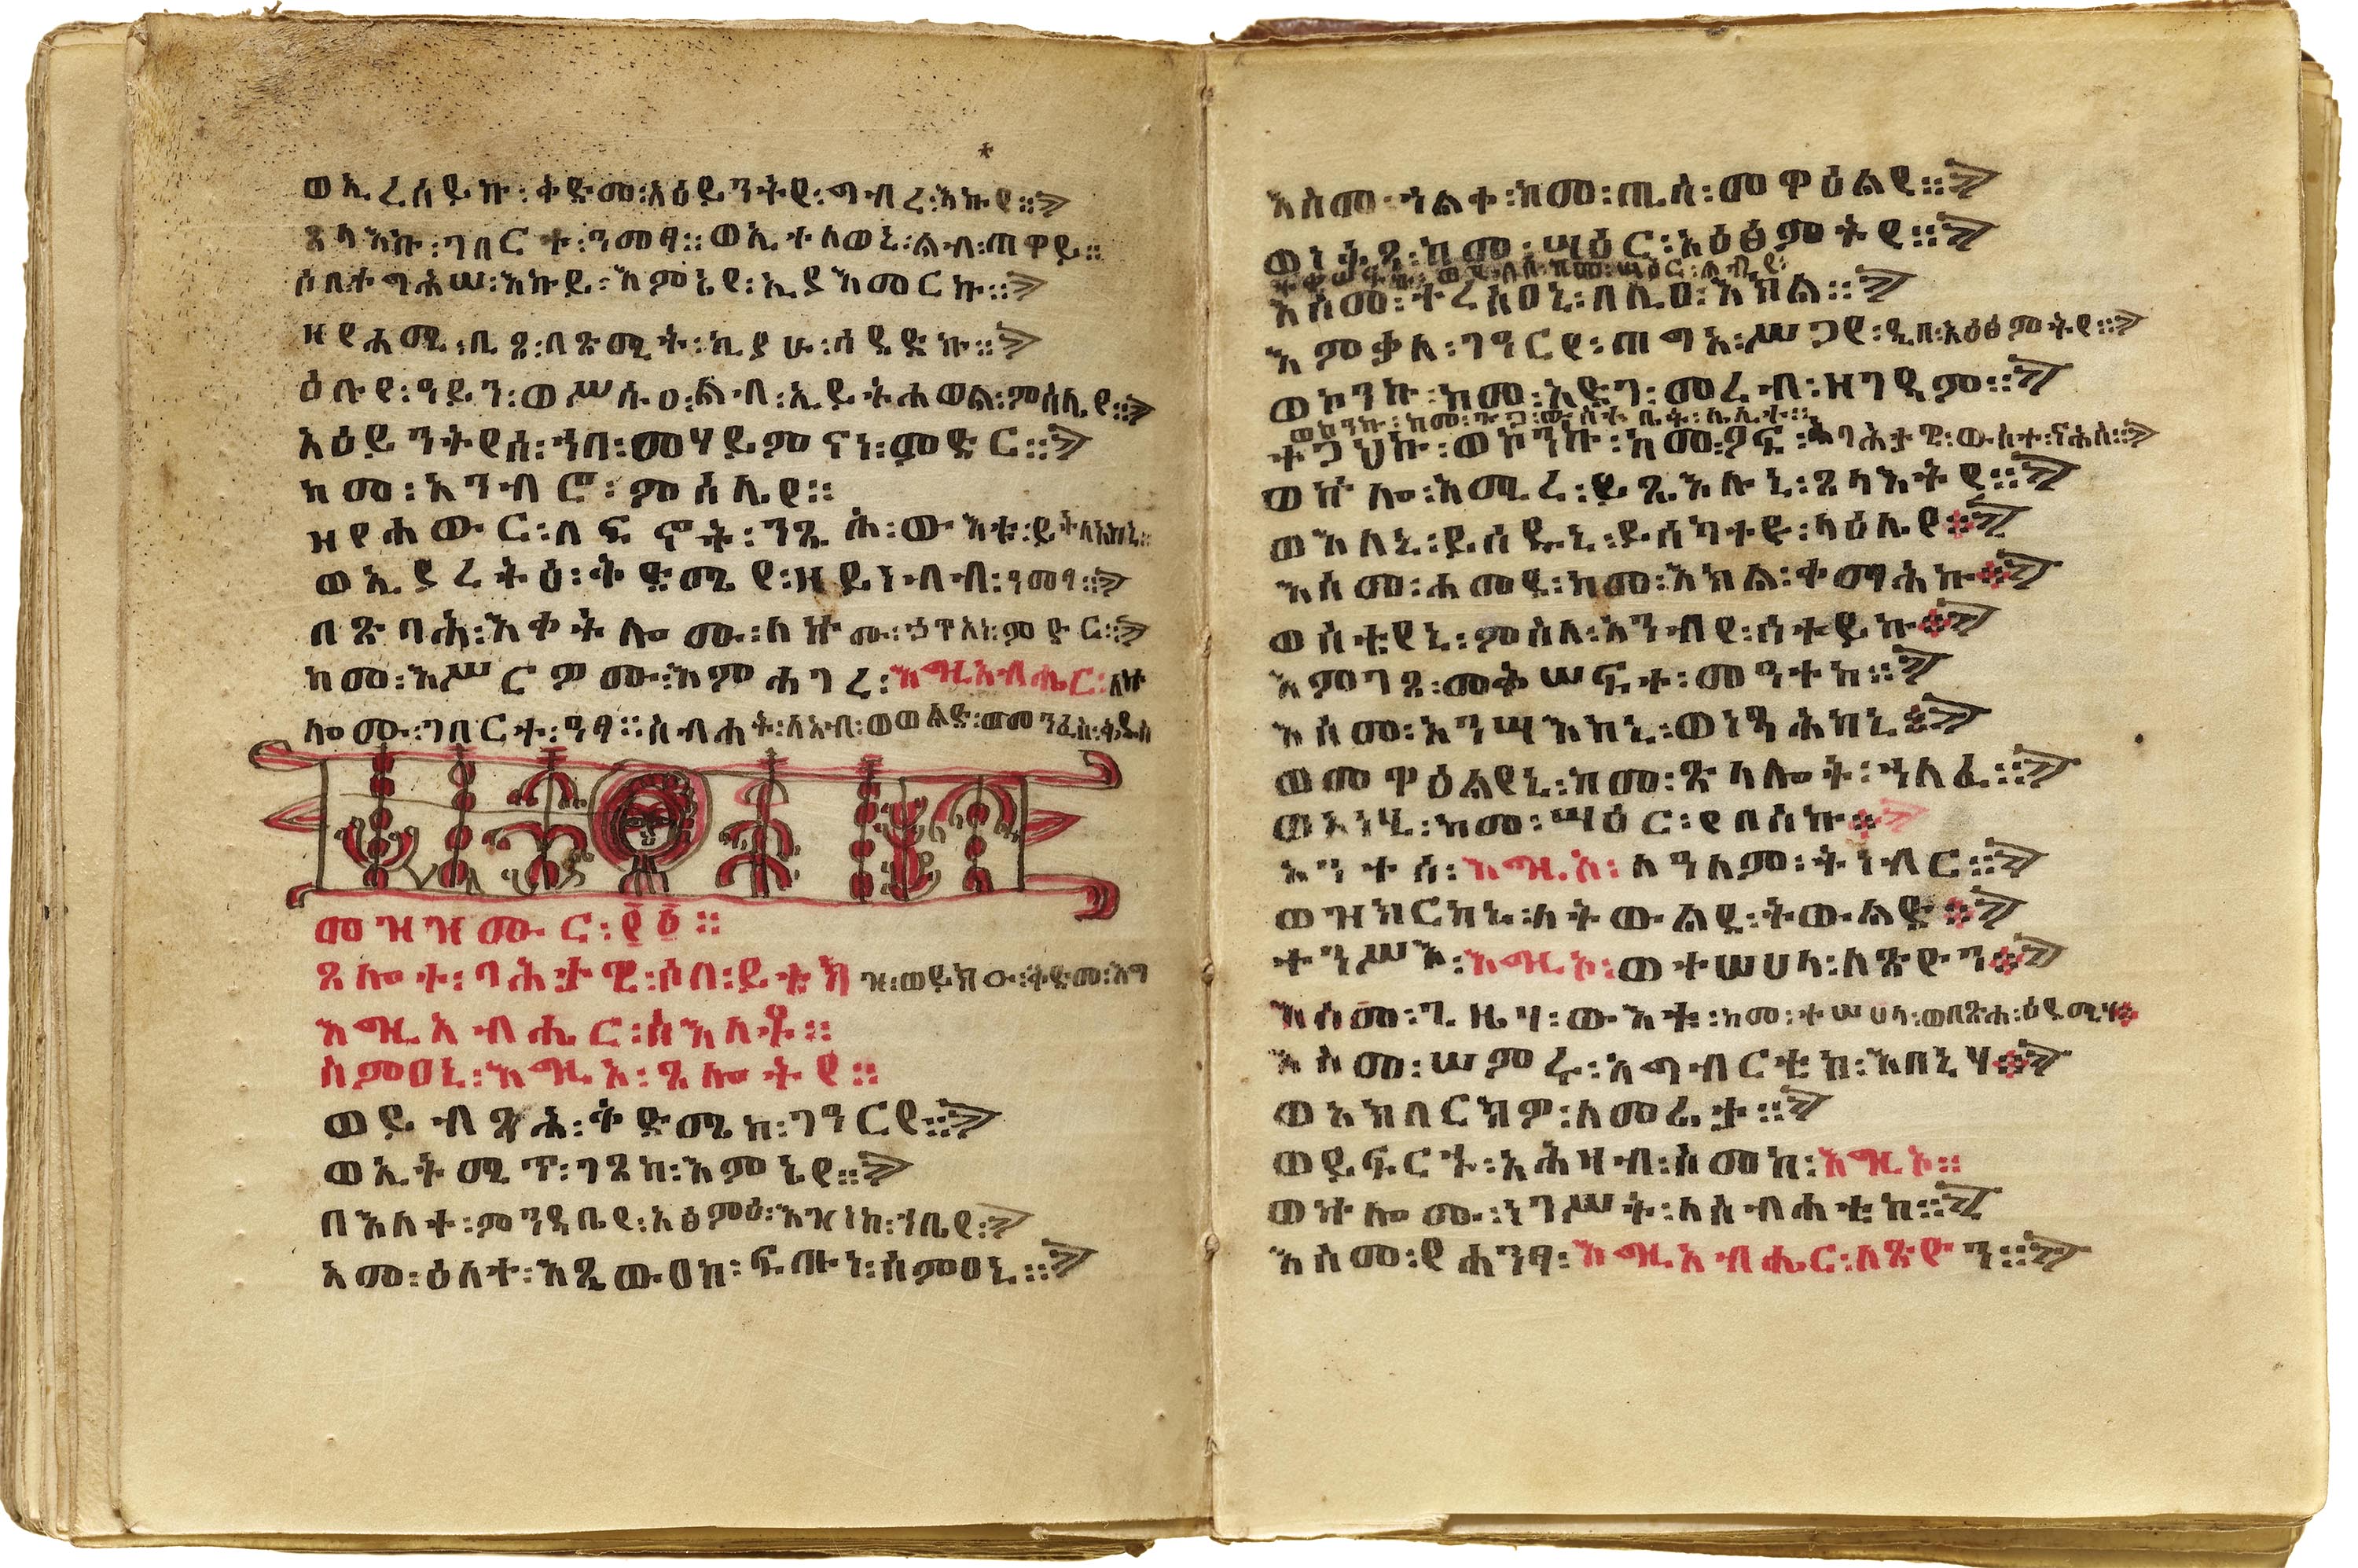 ወኢረሰይኩ፡ቅድመ፡አዕይንትየ፡ግብረ፡እኩየ።
ጸላእኩ፡ገበርተ፡ዓመፃ።ወኢተለወኒ፡ልብ፡ጠዋይ።
ሶበተግሕሠ፡እኩይ፡እምኔየ፡ኢያእመርኩ።
ዘየሐሚ፡ቢጾ፡በጽሚት፡ኪያሁ፡ሰደድኩ።
ዕቡየ፡ዓይን፡ወሥሱዐ፡ልብ፡ኢይትሐወል፡ምስሌየ።
አዕይንትየሰ፡ኀበ፡መሃይምናነ፡ምድር።
ከመ፡አንብሮ፡ምስሌየ።
ዘየሐውር፡በፍኖት፡ንጹሕ፡ውእቱ፡ይትለአከኒ።
ወኢያረትዕ፡ቅድሜየ፡ዘይነብብ፡ዓመፃ።
በጽባሕ፡እቀትሎሙ፡ለኵሙ፡ኃጥአነ፡ምድር።
ከመ፡እሥርዎሙ፡እምሐገረ፡እግዚአብሔር፡ለኵ
ሎሙ፡ገበርተ፡ዓፃ።ስብሐት፡ለአብ፡ወወልድ፡ወመንፈስ፡ቅዱስ
መዝሙር፡፻፩።
ጸሎተ፡ባሕታዊ፡ሶበ፡ይቴክዝ፡ወይክዑ፡ቅድመ፡እግ
እግዚአብሔር፡ስእለቶ።
ስምዐኒ፡እግዚኦ፡ጸሎትየ።
ወይብጻሕ፡ቅድሜከ፡ገዓርየ።
ወኢትሚጥ፡ገጸከ፡እምኔየ።
በእለተ፡ምንዳቤየ፡አፅምዕ፡እዝነከ፡ኀቤየ።
አመ፡ዕለተ፡እጼውዐከ፡ፍጡነ፡ስምዐኒ።
እስመ፡ኀልቀ፡ከመ፡ጢስ፡መዋዕልየ።
ወነትጸ፡ከመ፡ሣዕር፡አዕፅምትየ።
ተቀሠፍኩ፡ወየብሰ፡ከመ፡ሣዕር፡ልብየ፡
እስመ፡ተረስዐኒ፡በሊዐ፡እክል።
እምቃለ፡ገዓርየ፡ጠግአ፡ሥጋየ፡ዲበ፡አዕፅምትየ።
ወኮንኩ፡ከመ፡አድግ፡መረብ፡ዘገዳም።
ወኮንኩ፡ከመ፡ጉጋ፡ውስተ፡ቤቱ፡ሌሊተ።
ተጋህኩ፡ወኮንኩ፡ከመ፡ዖፍ፡ባሕታዊ፡ውስተ፡ናሕስ።
ወኵሎ፡አሚረ፡ይጼእሉኒ፡ጸላእትየ።
ወእለኒ፡ይሴድኒ፡ይሰካተዩ፡ላዕሌየ።
እስመ፡ሐመደ፡ከመ፡እክል፡ቀማሕኩ።
ወስቴየኒ፡ምስለ፡አንብዕየ፡ሰተይኩ።
እምገጸ፡መቅሠፍተ፡መዓተከ።
እስመ፡አንሣእከኒ፡ወነፃሕከኒ።
ወመዋዕልየኒ፡ከመ፡ጽላሎት፡ኀለፈ።
ወአነሂ፡ከመ፡ሣዕር፡የበስኩ።
አንተሰ፡እግዚኦ፡ለዓለም፡ትነብር።
ወዝክርከኒ፡ለትውልደ፡ትውልድ።
ተንሥእ፡እግዚኦ፡ወተሠሀላ፡ለጽዮን።
እስመ፡ጊዜሃ፡ውእቱ፡ከመ፡ተሠሀላ፡ወበጽሐ፡ዕድሜሃ
እስመ፡ሠምሩ፡አግብርቲከ፡እበኒሃ።
ወአክበርክዎ፡ለመሬታ።
ወይፍርሁ፡አሕዛብ፡ስመከ፡እግዚኦ።
ወኵሎሙ፡ነገሥት፡ለስብሐቲከ።
እስመ፡የሐንፃ፡እግዚአብሔር፡ለጽዮን።